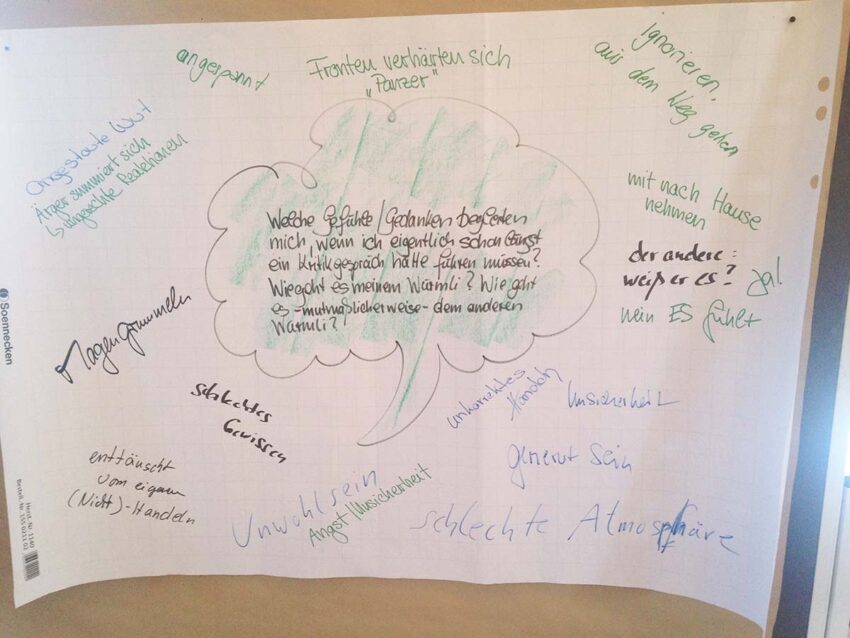 angespannt
Fronten verhärten sich
"Panzer"
Ignorieren,
aus dem Weg gehen
Angestaute Wut
Ärger summiert sich
↳ ungerechte Reaktionen
mit nach Hause
nehmen
Welche Gefühle / Gedanken begleiten
mich, wenn ich eigentlich schon längst
ein Kritikgespräch hätte führen müssen?
Wie geht es meinem Wärmli? Wie geht
es -mutmaßlicherweise- dem anderen
Wärmli?
der andere:
weiß er es? ja!
nein ES fühlt
Soennecken
Magengrummeln
schlechtes
Gewissen
unkorrektes
Handeln
Unsicherheit
genervt sein
enttäuscht
vom eigenen
(Nicht)-Handeln
Unwohlsein
Angst/Unsicherheit
schlechte Atmosphäre
Herst.-Nr. 1140
Bestell.-Nr. 155 0211 02